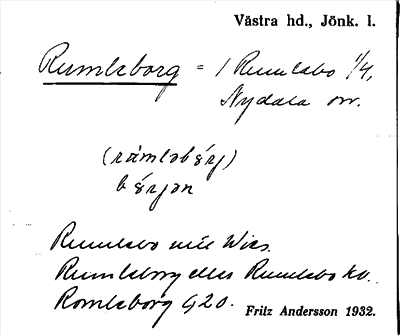 Västra hd., Jönk. l.
Rumlaborg = 1 Rumlabo 1/4,
Nydala sn.
(ràmlabǽrj)
bǽrjan
Rumlabo mil Wies.
Rumlaborg eller Rumlabo kv.
Romlaborg G20.
Fritz Andersson 1932.